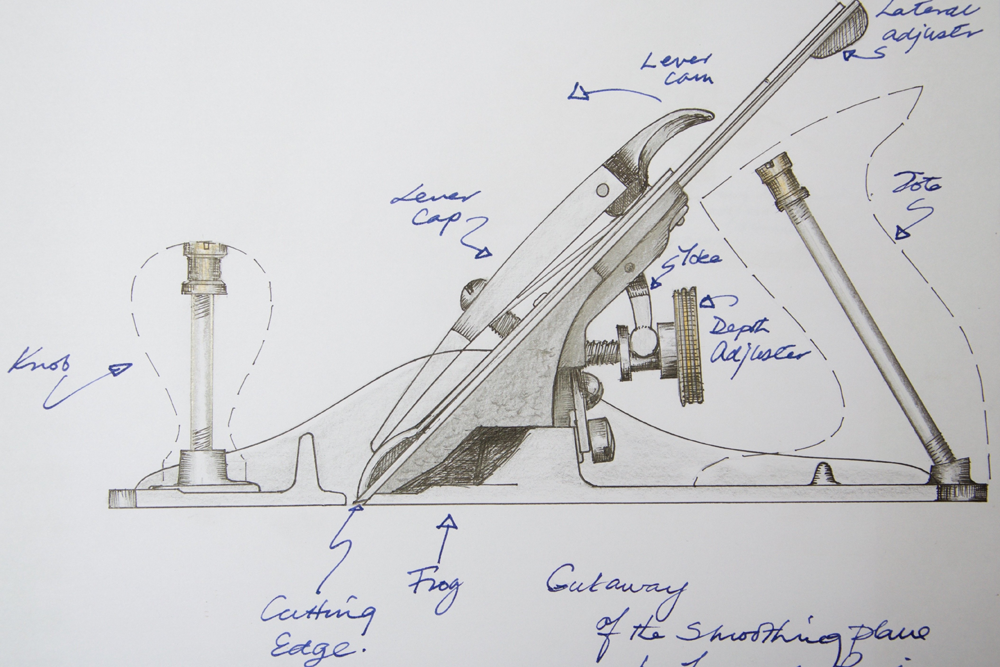 Lateral
adjuster
Lever
cam
Lever
Cap
Tote
Yoke
Depth
Adjuster
Knob
Frog
Cutting
Edge.
Cutaway
of the Smoothing plane